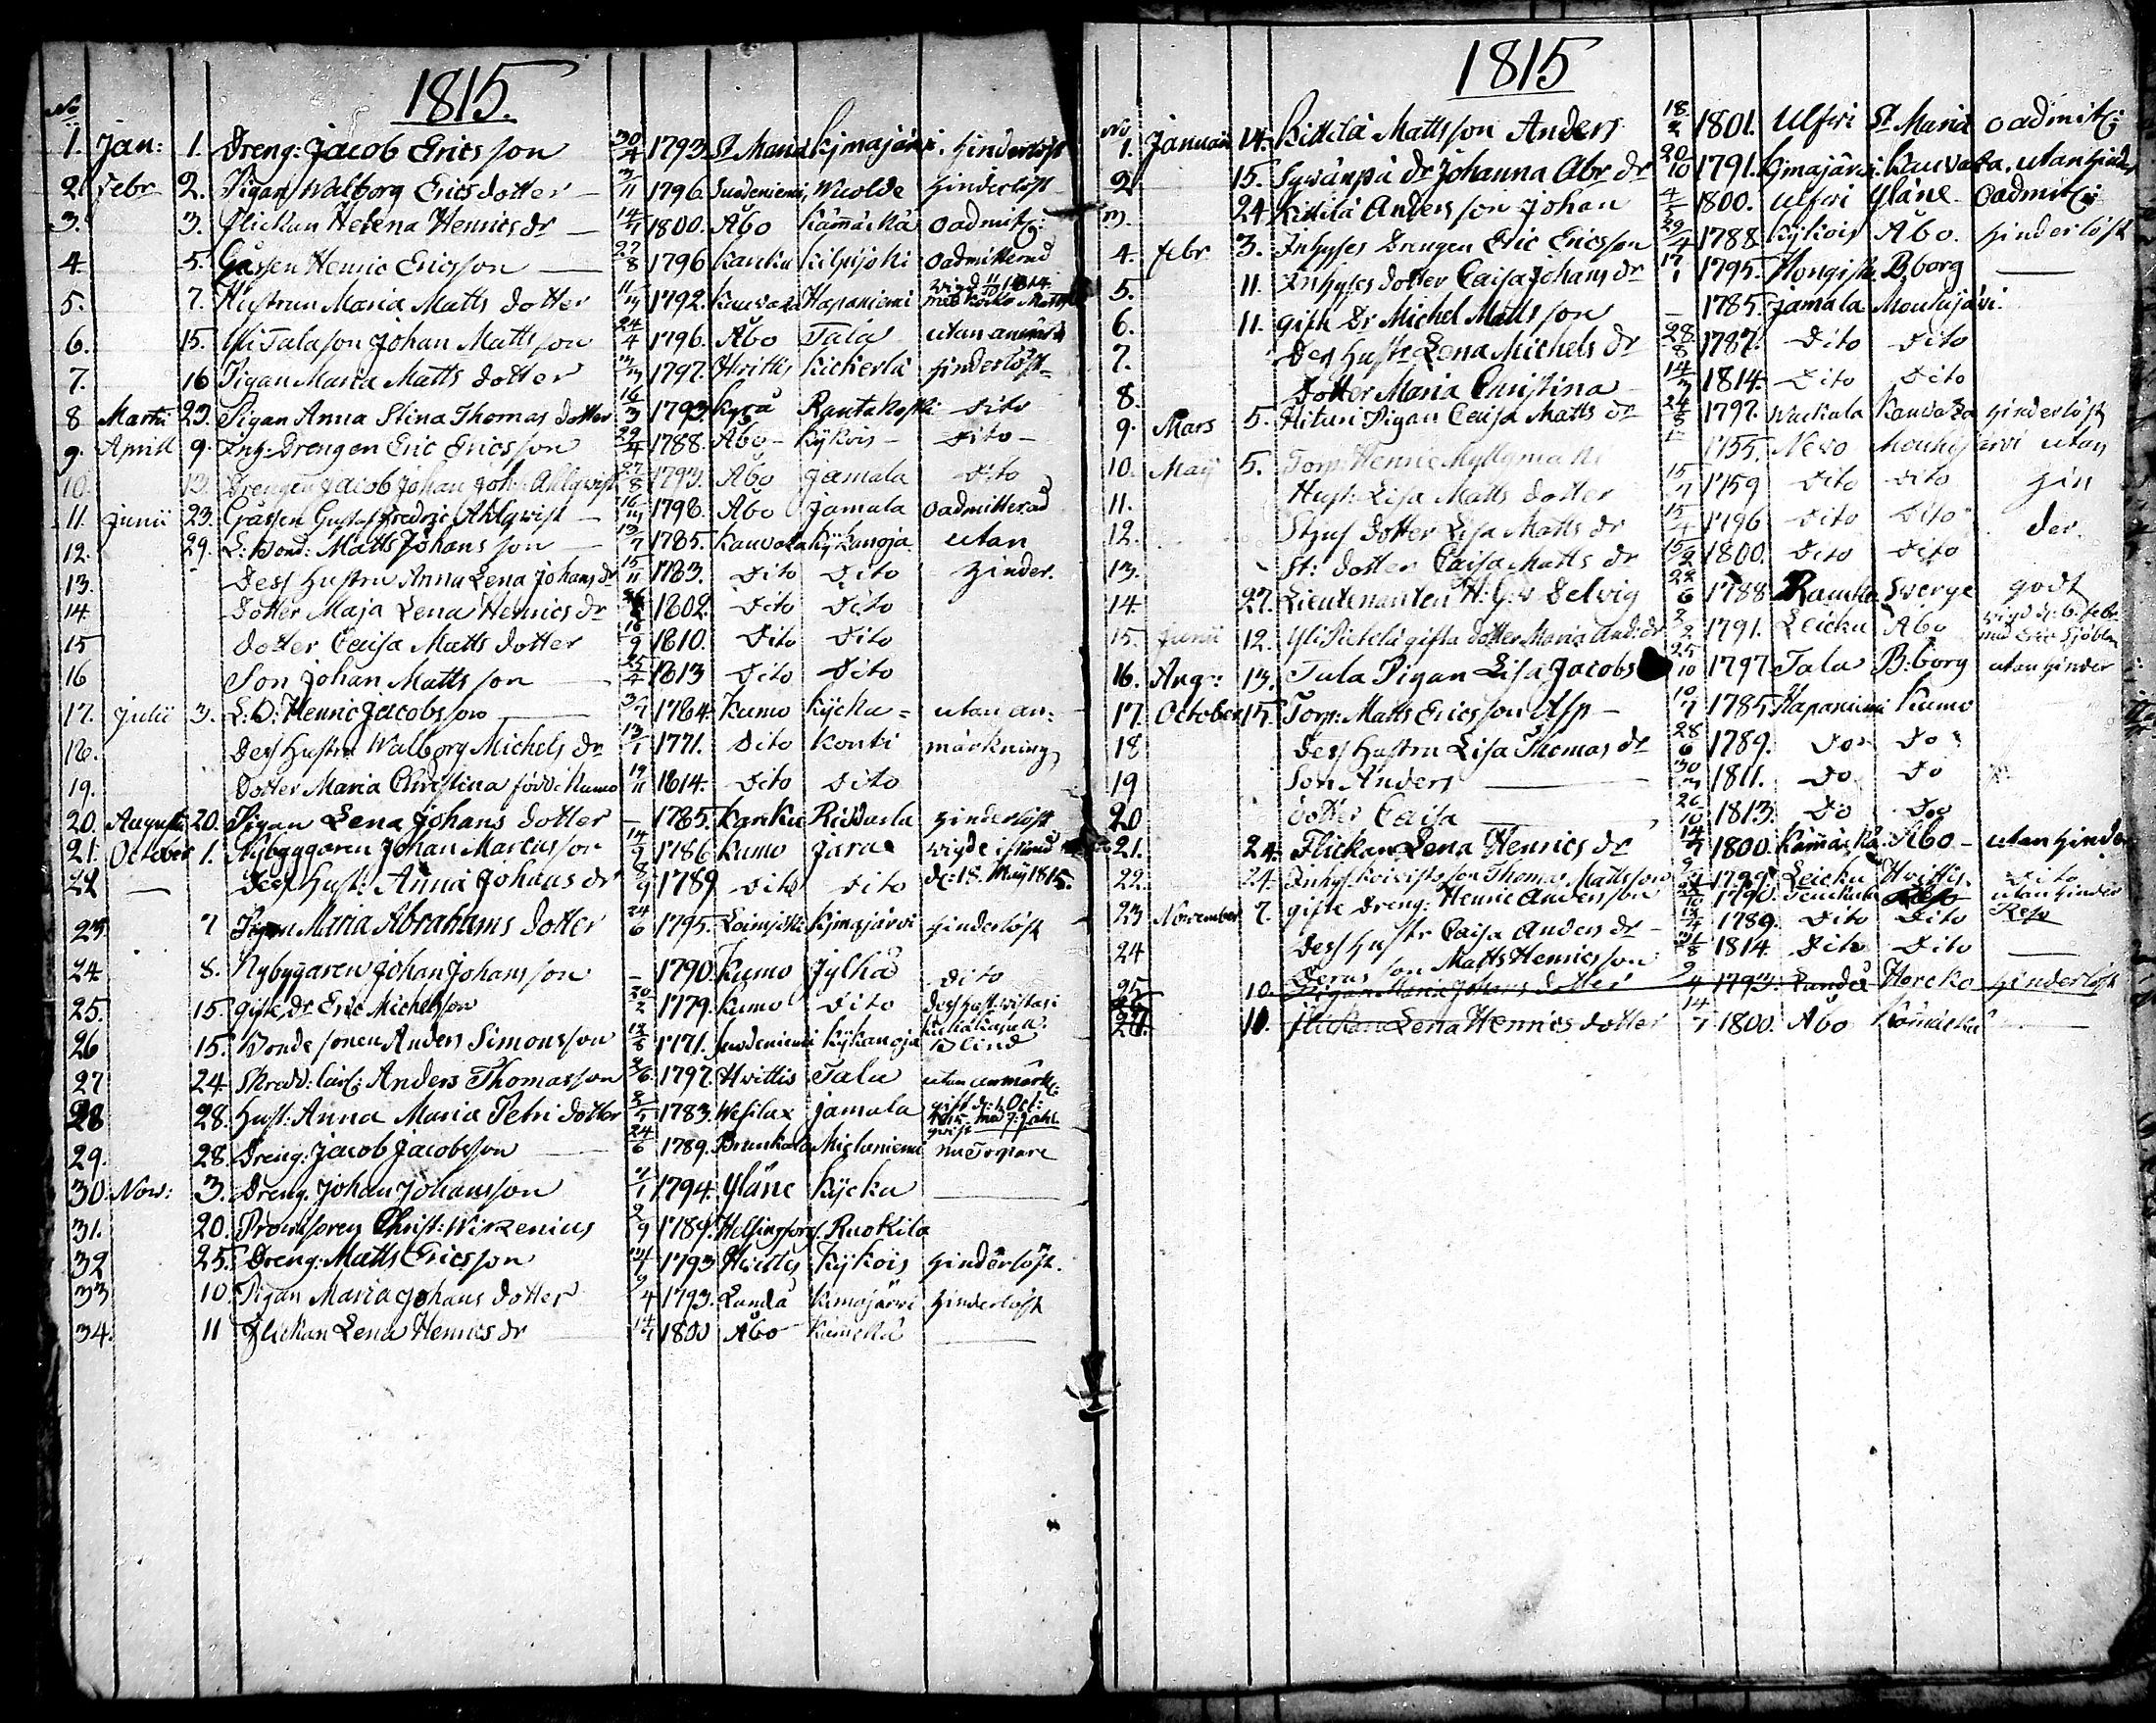 1815.
No
1. Jan: 1. Dreng: Jacob Ericsson 30/4 1793. St Maria Kjmajärvi. hinderlöst
2. Febr 2. Pigan Walborg Ericsdotter 3/11 1796. Suodeniemi, hinderlöst
3. 3. Flickan Helena Henricsdr 14/7 1800. Åbo Kämäckä oadmitt:
4. 5. Gåssen Henric Ericsson 27/8 1796 Karcku Kilpijoki oadmitterad
5. 7. Hustrun Maria Matts dotter 11/3 1792. Kauvaza Hapaniemi wigd 11/10 1814
6. 15. Yli Tala son Johan Mattsson 24/4 1796. Åbo Tala utan anmärk
7. 16 Pigan Maria Matts dotter 3/3 1797. Hvittis Kickerlä hinderlöst
8 Martii 23. Pigan Anna Stina Thomas dotter 16/3 1793. Kyrå Rantakoski dito
9. Aprill 9. Inh: Drengen Eric Ericsson 29/4 1788. Åbo Kykois dito
10. 13. Drengen Jacob Johan Joh: Ahlqvist 27/8 1793. Åbo Jamala dito
11. Junii 23. Gåssen Gustaf Fredric Ahlqvist 1798. Åbo Jamala oadmitterad
12. 29. L: Bond: Matts Johansson 13/7 1785. Kauvaza Kykänoja utan
13. Dess hustru Anna Lena Johans dr 15/11 1783. Dito Dito hinder.
14. Dotter Maja Lena Henrics dr 1802. Dito Dito
15 dotter Caisa Matts dotter 16/9 1810. Dito Dito
16 Son Johan Mattsson 25/4 1813 Dito Dito
17. Julii 3. L: B: Henric Jacobsson 3/7 1764. Kumo Kycku utan an:
18. Dess hustru Walborg Michels dr 13/1 1771. Dito Konti märkning
19. Dotter Maria Christina född i Kumo 19/11 1814. Dito Dito
20. Augusti 20. Pigan Lena Johans dotter 1785. Karcku Riddarla hinderlöst
21. October 1. Nybyggaren Johan Marcusson 14/9 1786 Kumo Jaraa wigde
22 — Dess hust: Anna Johans dr 8/9 1789 dito dito d: 18. Maij 1815.
23. 7 Pigan Maria Abrahams dotter 24/6 1795. Loimjoki Kjmajärvi hinderlöst
24 8. Nybyggaren Johan Johansson 1790. Kumo Jylhä dito
25. 15. gifte dr Eric Michelsson 20/2 1779. Kumo dito
26 15. Bonde sonen Anders Simonsson 1771. Suodeniemi Kykänoja Blind
27 24. Skredd: lärl: Anders Thomasson 2/6 1797. Hvittis Tala utan anmärk:
28 28. Hust: Anna Maria Petri dotter 1783. Wesilax Jamala gift d: 1. Oct:
29. 28. Dreng: Jacob Jacobsson 24/6 1789. Brunkala nu Torpare
30. Nov: 3. Dreng. Johan Johansson 1794. Yläne Kycku
31. 20. Provisoren Christ: Wirzenius 2/9 1784. Helsingfors. Ruokila
32 25. Dreng: Matts Ericsson 1793 Hvittis Kykois hinderlöst.
33 10. Pigan Maria Johans dotter 9/4 1793. Lundå Kimajärvi hinderlöst
34. 11 Flickan Lena Henrics dr 14/7 1800 Åbo Kämeckä
1815
No
1. Januari 14. Kittilä Mattsson Anders 18/2 1801. Ulfvi St Maria oadmitt:
2. 15. dr Johanna Abr dr 20/10 1791. Kjmajärvi. Kauvaza. utan hinder
3. 24 Kittilä Andersson Johan 4/5 1800. Ulfvi Yläne oadmitt:
4. febr 3. Inhyses Drengen Eric Ericsson 29/4 1788. Kykois Åbo. hinderlöst
5. 11. Inhyses dotter Caisa Johans dr 17/1 1795. Mongisto B:borg
6. 11. gifte Dr Michel Mattsson 1785. Jamala Mouhijärvi.
7. Dess hustr Lena Michels dr 28/8 1787. Dito Dito
8. Dotter Maria Christina 14/3 1814. Dito Dito
9. Mars 5. Hituri Pigan Caisa Matts dr 24/8 1797. Kauvaza hinderlöst
10. Maij 5. Torp: Henric Myllymaki 1755. Nevo Mouhijärvi utan
11. Hust: Lisa Matts dotter 15/7 1759 dito dito hin
12. Stjuf dotter Lisa Matts dr 15/4 1796 Dito Dito der.
13. St: dotter Caisa Matts dr 15/2 1800. Dito Dito
14 27. Lieutenanten H: G: v Delvig 22/6 1788. Sverge godt
15. Junii 12. Yli Pietelä gifta dotter Maria And: dr 1791. Leicku Åbo wigd d: 6. febr. med Eric Sjöblom
16. Aug: 13. Tala Pigan Lisa Jacobs 25/10 1797 Tala B:borg utan hinder
17. October 15. Torp: Matts Ericsson Asp 10/7 1785. Haponiemi Kumo
18 Dess hustru Lisa Thomas dr 28/6 1789. Do Do
19 Son Anders 1811. Do Do
20 dotter Caisa 26/10 1813. Do Do
21. 24. Flickan Lena Henrics dr 14/7 1800. Kämäckä. Åbo utan hinder
22. 24. Inhys: Koivisto son Thomas Mattsson 1799 Leicku Hvittis. Dito
23 November 7. gifte Dreng: Henric Andersson 1790. utan hinder
24 Dess hustr Caisa Anders dr 1789. Dito Dito Reso
Deras son Matts Henricsson 1814. Dito Dito
25 10. Pigan Maria Johans dotter 9/4 1793. Lundå Horcko hinderlöst
26. 11. Flickan Lena Henrics dotter 14/7 1800. Åbo Kämäckä